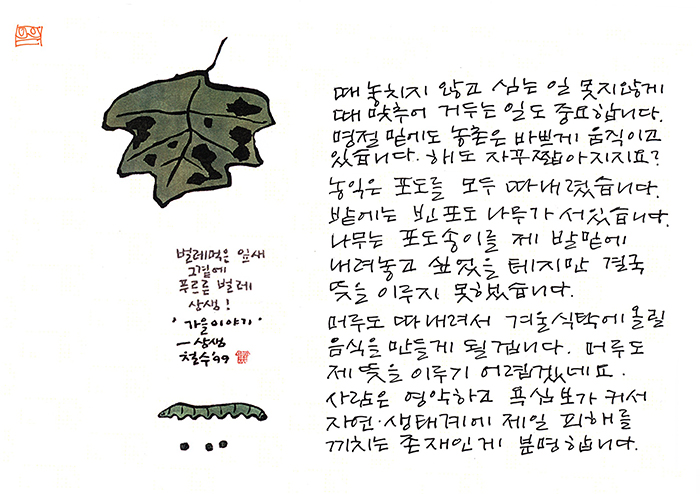 벌레먹은 잎새
그곁에
푸르른 벌레
상생!
'가을이야기'
-상생
철수'99
때 놓치지 않고 심는 일 못지않게
때 맞추어 거두는 일도 중요합니다.
명절 밑에도 농촌은 바쁘게 움직이고
있습니다. 해도 자꾸 짧아지지요?
농익은 포도를 모두 따 내렸습니다.
밭에는 빈 포도나무가 서있습니다.
나무는 포도송이를 제 발밑에
내려놓고 싶었을 테지만 결국
뜻을 이루지 못했습니다.
머루도 따내려서 겨울식탁에 올릴
음식을 만들게 될겁니다. 머루도
제 뜻을 이루기 어렵겠네요.
사람은 영악하고 욕심보가 커서
자연·생태계에 제일 피해를
끼치는 존재인게 분명합니다.